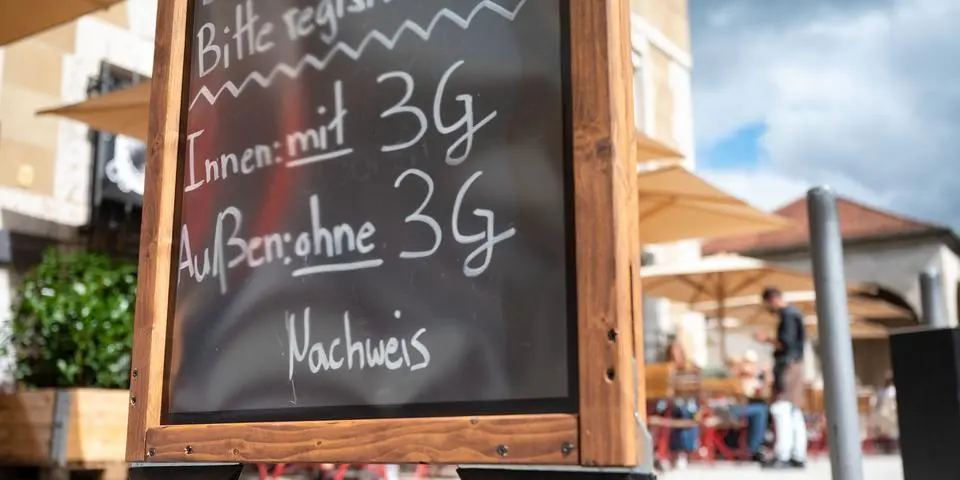 Bitte
Innen: mit 3G
Außen: ohne 3G
Nachweis